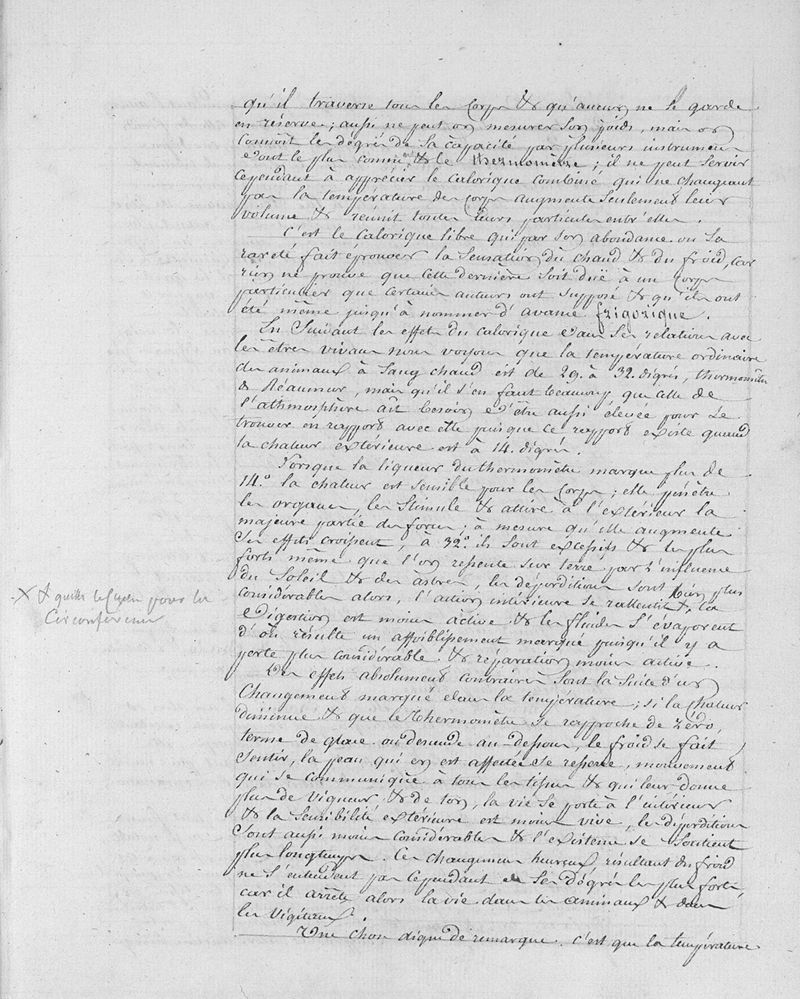 qu'il traverse tous les Corps & qu'aucun ne le garde
en réserve; aussi ne peut on mesurer son poids, mais on
connoit les dégrés de sa capacité par plusieurs instrumens
dont le plus commun est le thermomètre; il ne peut servir
cependant à apprécier le calorique combiné qui ne changeant
pas la température des Corps augmente seulement leur
volume & réunit toutes leurs particules entr'elles.
C'est le calorique libre qui par son abondance ou sa
rareté fait éprouver la sensation du chaud & du froid, car
rien ne prouve que cette dernière soit düe à un Corps
particulier que certains auteurs ont supposé & qu'ils ont
été même jusqu'à nommer d'avance frigorique.
En suivant les effets du calorique dans ses relations avec
les êtres vivans nous voyons que la température ordinaire
des animaux à sang chaud est de 29. à 32. dégrés, thermomètre
de Réaumur, mais qu'il s'en faut beaucoup que celle de
l'athmosphère ait besoin d'être aussi élevée pour se
trouver en rapport avec elle puisque ce rapport existe quand
la chaleur extérieure est à 14. dégrés.
Lorsque la liqueur du thermomètre marque plus de
14.° la chaleur est sensible pour les Corps; elle pénètre
les organes, les stimule & attire à l'extérieur la
majeure partie des forces; à mesure qu'elle augmente
ses effets croissent, à 32.° ils sont excessifs & les plus
forts même que l'on ressente sur terre par l'influence
du Soleil & des astres, les déperditions sont bien plus
considérables alors, l'action intérieure se rallentit X, la
digestion est moins active & les fluides s'évaporent
d'où résulte un affoiblissement marqué puisqu'il y a
perte plus considérable & réparation moins active.
Des effets absolument contraires sont la suite d'un
Changement marqué dans la température; si la chaleur
diminue & que le thermomètre se rapproche de zéro,
terme de glace ou descende au dessous, le froid se fait
sentir, la peau qui en est affectée se resserre, mouvement
qui se communique à tous les tissus & qui leur donne
plus de vigueur & de ton, la vie se porte à l'intérieur
& la sensibilité extérieure est moins vive, les déperditions
sont aussi moins considérables & l'existence se soutient
plus longtemps. Ces changemens heureux résultant du froid
ne s'entendent pas cependant de ses dégrés les plus forts,
car il arrête alors la vie dans les animaux & dans
les végétaux.
Une chose digne de remarque, c'est que la température
X & quitte le Centre pour la
Circonférence